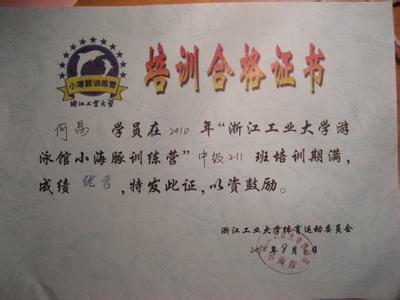 小海豚训练营
浙江工业大学
培训合格证书
何易 学员在2010年“浙江工业大学游
泳馆小海豚训练营”中级211班培训期满，
成绩优秀，特发此证，以资鼓励。
浙江工业大学体育运动委员会
2010年9月6日